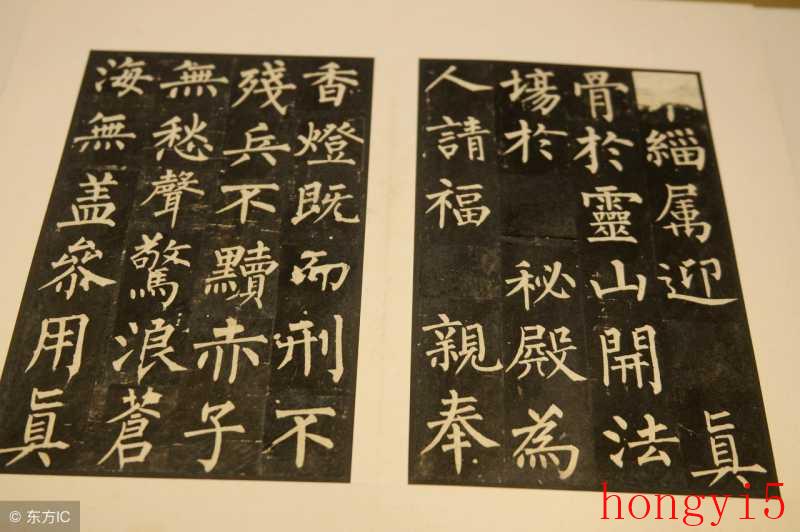 緇属迎 眞
骨於靈山開法
場於 秘殿為
人請福 親奉
香燈既而刑不
殘兵不黷赤子
無愁聲驚浪蒼
海無盖叅用眞
© 东方IC
hongyi5